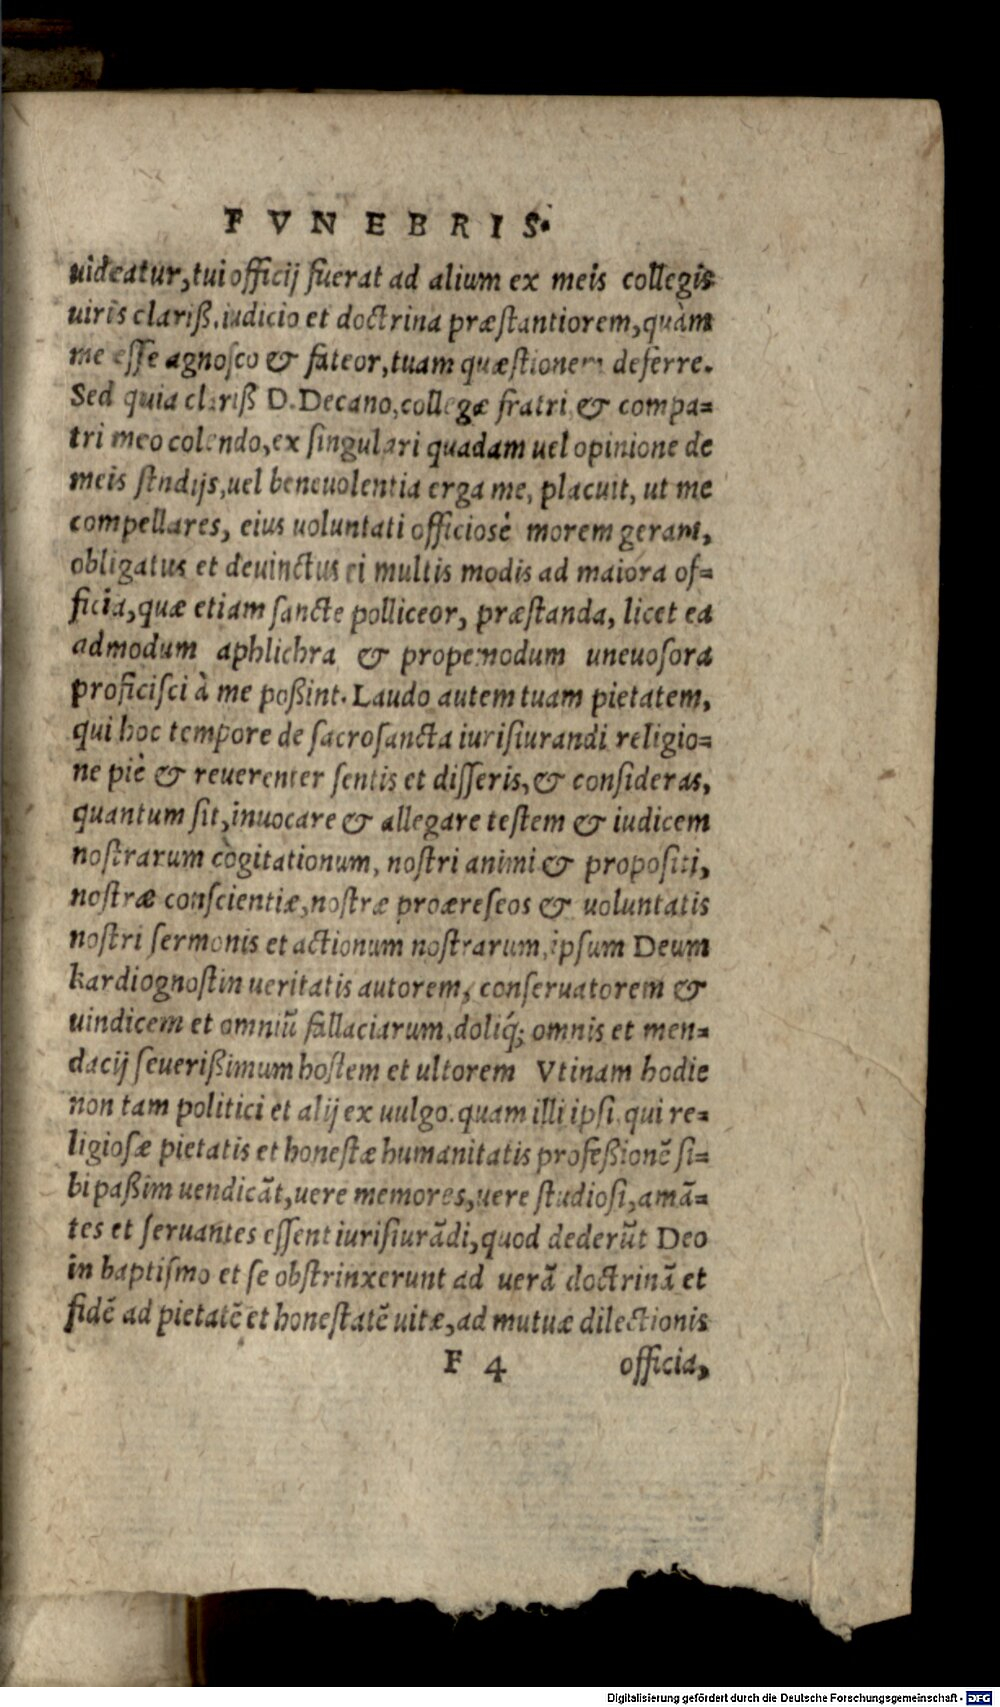 FVNEBRIS.
uideatur, tui officij fuerat ad alium ex meis collegis
uiris clariß. iudicio et doctrina præstantiorem, quàm
me esse agnosco & fateor, tuam quæstionem deferre.
Sed quia clariß D. Decano, collegæ fratri, & compa=
tri meo colendo, ex singulari quadam uel opinione de
meis stndijs, uel beneuolentia erga me, placuit, ut me
compellares, eius uoluntati officiosè morem geram,
obligatus et deuinctus ei multis modis ad maiora of=
ficia, quæ etiam sancte polliceor, præstanda, licet ea
admodum aphlichra & propemodum uneuosora
proficisci à me poßint. Laudo autem tuam pietatem,
qui hoc tempore de sacrosancta iurisiurandi religio=
ne piè & reuerenter sentis et disseris, & consideras,
quantum sit, inuocare & allegare testem & iudicem
nostrarum cogitationum, nostri animi & propositi,
nostræ conscientiæ, nostræ proæreseos & uoluntatis
nostri sermonis et actionum nostrarum, ipsum Deum
kardiognostin ueritatis autorem, conseruatorem &
uindicem et omniũ fallaciarum, doliq́; omnis et men=
dacij seuerißimum hostem et ultorem Vtinam hodie
non tam politici et alij ex uulgo. quam illi ipsi. qui re=
ligiosæ pietatis et honestæ humanitatis profeßionẽ si=
bi paßim uendicãt, uere memores, uere studiosi, amã=
tes et seruantes essent iurisiurãdi, quod dederũt Deo
in baptismo et se obstrinxerunt ad uerã doctrinã et
fidẽ ad pietatẽ et honestatẽ uitæ, ad mutuæ dilectionis
F 4 officia,
Digitalisierung gefördert durch die Deutsche Forschungsgemeinschaft - DFG